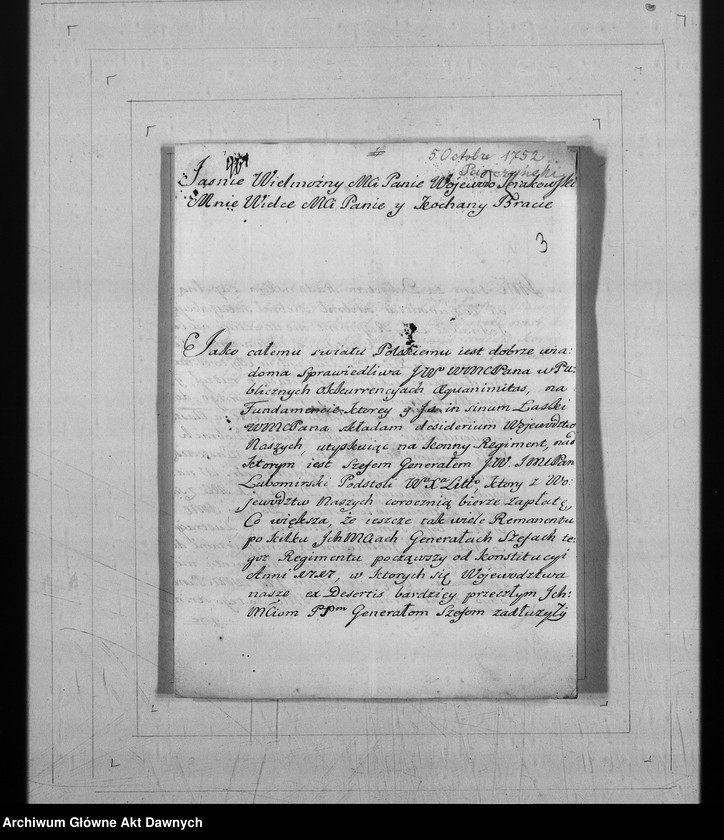 5. Octobre 1752
Jasnie Wielmożny Mći Panie Wojewdo Krakowski
Mnie Wielce Mći Panie y Kochany Bracie
3
Jako całemu swiatu Polskiemu iest dobrze wia:
doma sprawiedliwa JWo WMCPana w Pu-
blicznych okkurrencyach Æquanimitas, na
Fundamencie ktorey y Ja in sinum Łaski
WMCPana składam desiderium Wojewodztw
Naszych, utyskuiąc na Konny Regiment, nad
ktorym iest Szefem Generałem JW JMCPan
Lubomirski Podstoli Wo Xa Litto ktory z Wo:
jewodztw Naszych corocznią bierze zapłatę,
Co większa, że ieszcze tak wiele Remanentu
po kilku JchMCiach Generałach Szefach te:
goż Regimentu począwszy od Konstitucyi
Anni 1717, w ktorych się Wojewodztwa
nasze ex Desertis bardziey przeszłym Jch:
MCiom PPm Generałom Szefom zadłużyły
Archiwum Główne Akt Dawnych